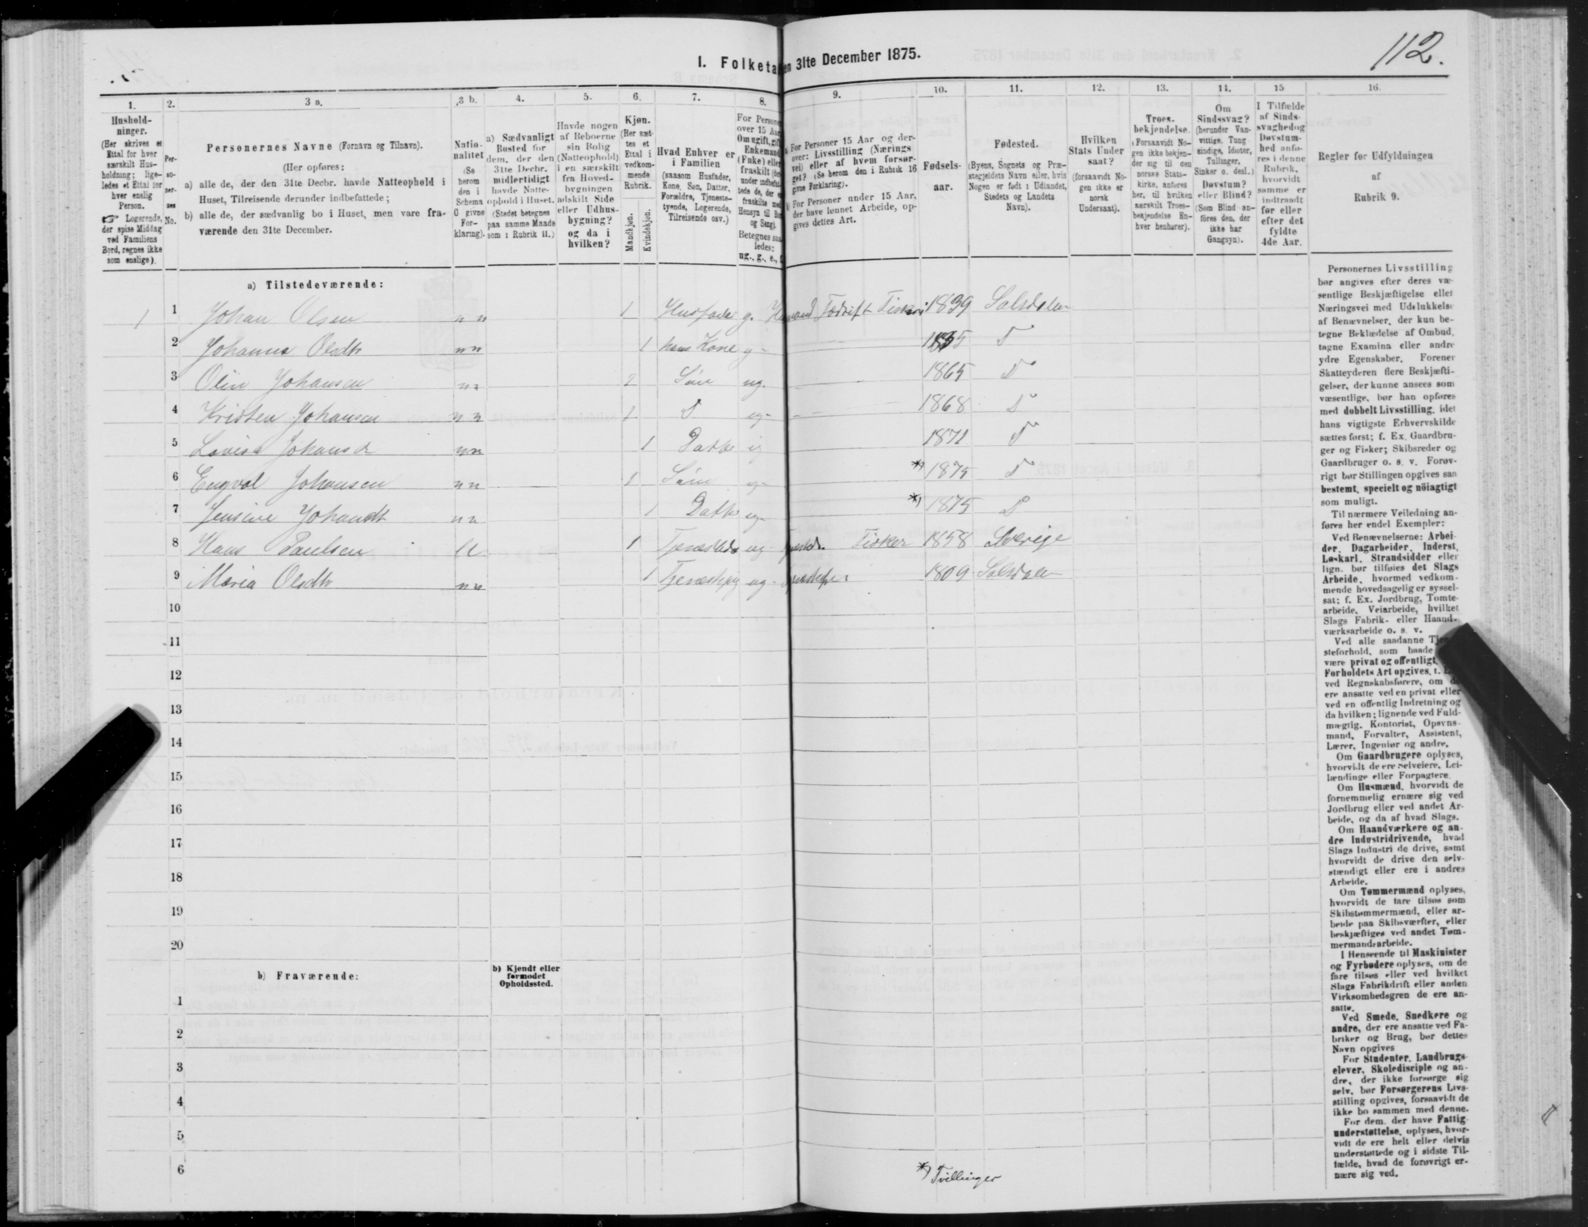 112.
1. Folketa en 31te December 1875.
1. 2. 3 a. 3 b. 4. 5. 6. 7. 8. 9. 10. 11. 12. 13. 14. 15 16.
Hushold-
ninger.
(Her skrives et
Ettal for hver
særskilt Hus-
holdning; lige-
ledes et Ettal for
hver enslig
Person.
☞ Logerende,
der spise Middag
ved Familiens
Bord, regnes ikke
som enslige).
Per-
so-
ner-
nes
No.
Personernes Navne (Fornavn og Tilnavn).
(Her opføres:
a) alle de, der den 31te Decbr. havde Natteophold i
Huset, Tilreisende derunder indbefattede;
b) alle de, der sædvanlig bo i Huset, men vare fra-
værende den 31te December.
Natio-
nalitet
(Se
herom
den i
Schema
O givne
For-
klaring).
a) Sædvanligt
Bosted for
dem, der den
31te Decbr.
midlertidigt
havde Natte-
ophold i Huset.
(Stedet betegnes
paa samme Maade
som i Rubrik 11.)
Havde nogen
af Beboerne
sin Bolig
(Natteophold)
i en særskilt
fra Hoved-
bygningen
adskilt Side
eller Udhus-
bygning?
og da i
hvilken?
Kjøn.
(Her sæt-
tes et
Ettal i
vedkom-
mende
Rubrik.
Mandkjøn.
Kvindekjøn.
Hvad Enhver er
i Familien
(saasom Husfader,
Kone, Søn, Datter,
Forældre, Tjeneste-
tyende, Logerende,
Tilreisende osv.)
For Persone
over 15 Aar
Om ugift, gift
Enkemand
(Enke) eller
fraskilt
ug., g., e.,
For Personer 15 Aar og der-
over: Livsstilling (Nærings
vei) eller af hvem forsør-
get? (Se herom den i Rubrik 16
givne Forklaring).
For Personer under 15 Aar,
der have lønnet Arbeide, op-
gives dettes Art.
Fødsels-
aar.
Fødested.
(Byens, Sognets og Præ-
stegjeldets Navn eller, hvis
Nogen er født i Udlandet,
Stedets og Landets
Navn).
Hvilken
Stats Under
saat?
(forsaavidt No-
gen ikke er
norsk
Undersaat).
Troes-
bekjendelse.
(Forsaavidt No-
gen ikke bekjen-
der sig til den
norske Stats-
kirke, anføres
her, til hvilken
særskilt Troes-
bekjendelse En-
hver henhører).
Om
Sindssvag?
(herunder Van-
vittige, Tung
sindige, Idioter,
Tullinger,
Sinker o. desl.)
Døvstum?
eller Blind?
(Som Blind an-
føres den, der
ikke har
Gangsyn).
I Tilfælde
af Sinds-
svaghed og
Døvstum-
hed anfø-
res i denne
Rubrik,
hvorvidt
samme er
indtraadt
før eller
efter det
fyldte
4de Aar.
Regler for Udfyldningen
af
Rubrik 9.
a) Tilstedeværende:
1 1 Johan Olsen nn 1 Husfader g. Fisker 1839 Salsdalen
2 Johanna Olsdtr nn 1 hans Kone g- 1835 D
3 Olin Johansen nn 1 Søn ug. 1865 D
4 Kristen Johansen nn 1 D ug- 1868 D
5 Lovise Johansd nn 1 Datter ug 1871 D
6 Engval Johansen nn 1 Søn ug- *) 1875 D
7 Jensine Johansdt nn 1 Datter ug- *) 1875 D
8 Hans Paulsen 1 ug Fisker 1858 Sverige
9 Maria Olsdtr nn 1 ug- 1809 Salsdalen
10
11
12
13
14
15
16
17
18
19
20
b) Fraværende:
b) Kjendt eller
formodet
Opholdssted.
1
2
3
4
5
6
*) Tvillinger
Personernes Livsstilling
bør angives efter deres væ-
sentlige Beskjæftigelse eller
Næringsvei med Udelukkelse
af Benævnelser, der kun be-
tegne Beklædelse af Ombud,
tagne Examina eller andre
ydre Egenskaber. Forener
Skatteyderen flere Beskjæfti-
gelser, der kunne ansees som
væsentlige, bør han opføres
med dobbelt Livsstilling, idet
hans vigtigste Erhvervskilde
sættes først; f. Ex. Gaardbru-
ger og Fisker; Skibsreder og
Gaardbruger o. s. v. Forøv-
rigt bør Stillingen opgives saa
bestemt, specielt og nøiagtig
som muligt.
Til nærmere Veiledning an-
føres her endel Exempler:
Ved Benævnelserne: Arbei-
der, Dagarbeider, Inderst,
Løskarl, Strandsidder eller
lign. bør tilføies det Slags
Arbeide, hvormed vedkom-
mende hovedsagelig er syssel-
sat; f. Ex. Jordbrug, Tomte-
arbeide, Veiarbeide, hvilket
Slags Fabrik- eller Haand-
værksarbeide o. s. v.
Ved alle saadanne Tje
steforhold, som baade
være privat og offentligt,
Forholdets Art opgives, t.
ved Regnskabsførere, om
ere ansatte ved en privat eller
ved en offentlig Indretning og
da hvilken; lignende ved Fuld-
mægtig, Kontorist, Opsyns-
mand, Forvalter, Assistent,
Lærer, Ingeniør og andre.
Om Gaardbrugere oplyses,
hvorvidt de ere Selveiere, Lei-
lændinge eller Forpagtere.
Om Husmænd, hvorvidt de
fornemmelig ernære sig ved
Jordbrug eller ved andet Ar-
beide, og da af hvad Slags.
Om Haandværkere og an-
dre Industridrivende, hvad
Slags Industri de drive, samt
hvorvidt de drive den selv-
stændigt eller ere i andres
Arbeide.
Om Tømmermænd oplyses,
hvorvidt de fare tilsøs som
Skibstømmermænd, eller ar-
beide paa Skibsværfter, eller
beskjæftiges ved andet Tøm-
mermandsarbeide.
I Henseende til Maskinister
og Fyrbødere oplyses, om de
fare tilsøs eller ved hvilket
Slags Fabrikdrift eller anden
Virksomhedsgren de ere an-
satte.
Ved Smede, Snedkere og
andre, der ere ansatte ved Fa-
briker og Brug, bør dettes
Navn opgives
For Studenter, Landbrugs-
elever, Skoledisciple og an-
dre, der ikke forsørge sig
selv, bør Forsørgerens Livs-
stilling opgives, forsaavidt de
ikke bo sammen med denne.
For dem, der have Fattig-
understøttelse, oplyses, hvor-
vidt de ere helt eller delvis
understøttede og i sidste Til-
fælde, hvad de forøvrigt er-
nære sig ved.